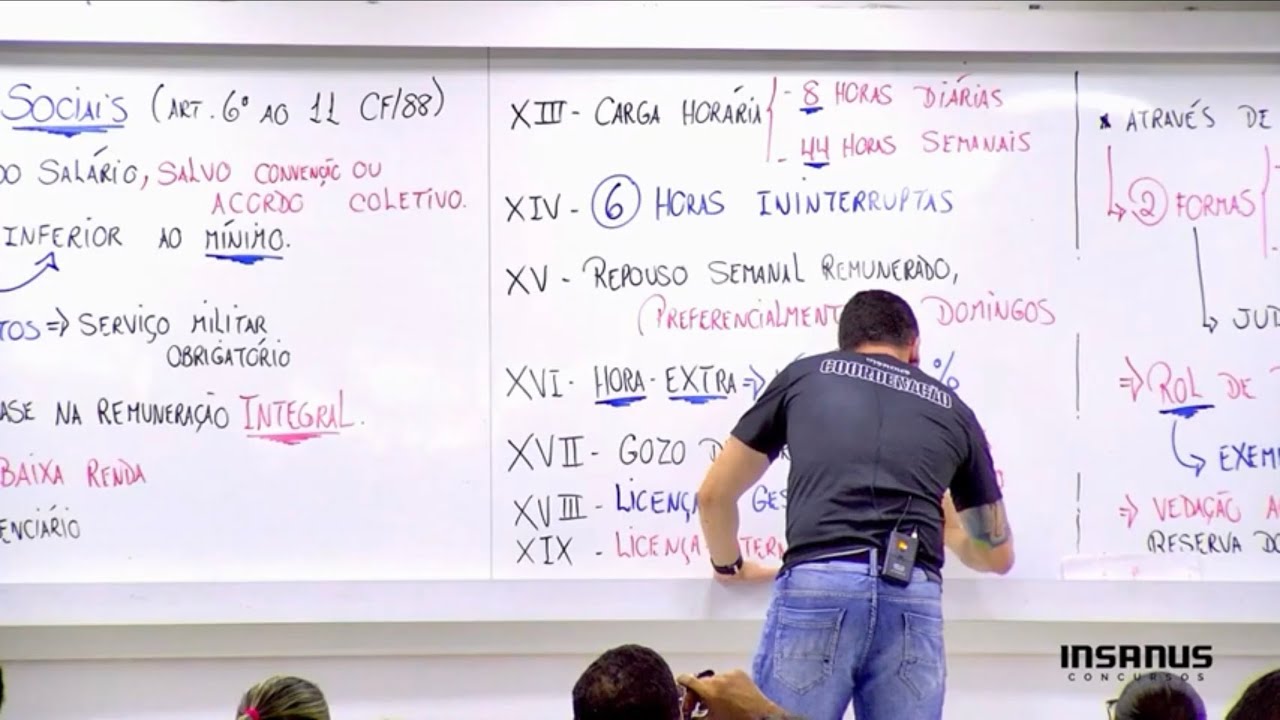 SOCIAIS (ART. 6º AO 11 CF/88)
DO SALÁRIO, SALVO CONVENÇÃO OU
ACORDO COLETIVO.
INFERIOR AO MÍNIMO.
TOS => SERVIÇO MILITAR
OBRIGATÓRIO
ASE NA REMUNERAÇÃO INTEGRAL.
BAIXA RENDA
ENCIÁRIO
XIII - CARGA HORÁRIA { - 8 HORAS DIÁRIAS
- 44 HORAS SEMANAIS
XIV - 6 HORAS ININTERRUPTAS
XV - REPOUSO SEMANAL REMUNERADO,
(PREFERENCIALMENT DOMINGOS
XVI - HORA-EXTRA => %
XVII - GOZO D
XVIII - LICENÇA GES
XIX - LICENÇA TERN
ATRAVÉS DE
2 FORMAS {
JUD
=> ROL DE T
EXEM
=> VEDAÇÃO A
RESERVA DO
INSANUS
COORDENAÇÃO
INSANUS
CONCURSOS